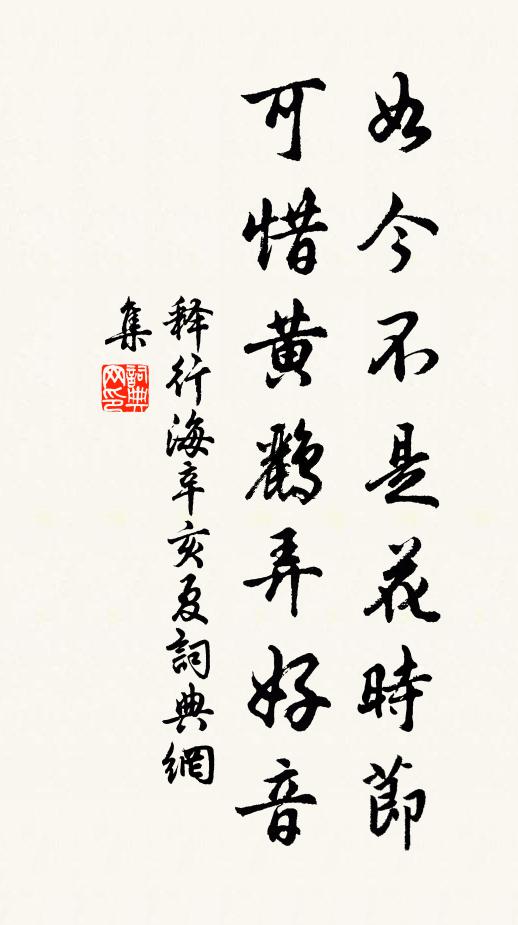 如今不是花時節
可惜黃鸝弄好音
释行海辛亥夏詞典網
集
詞典网印